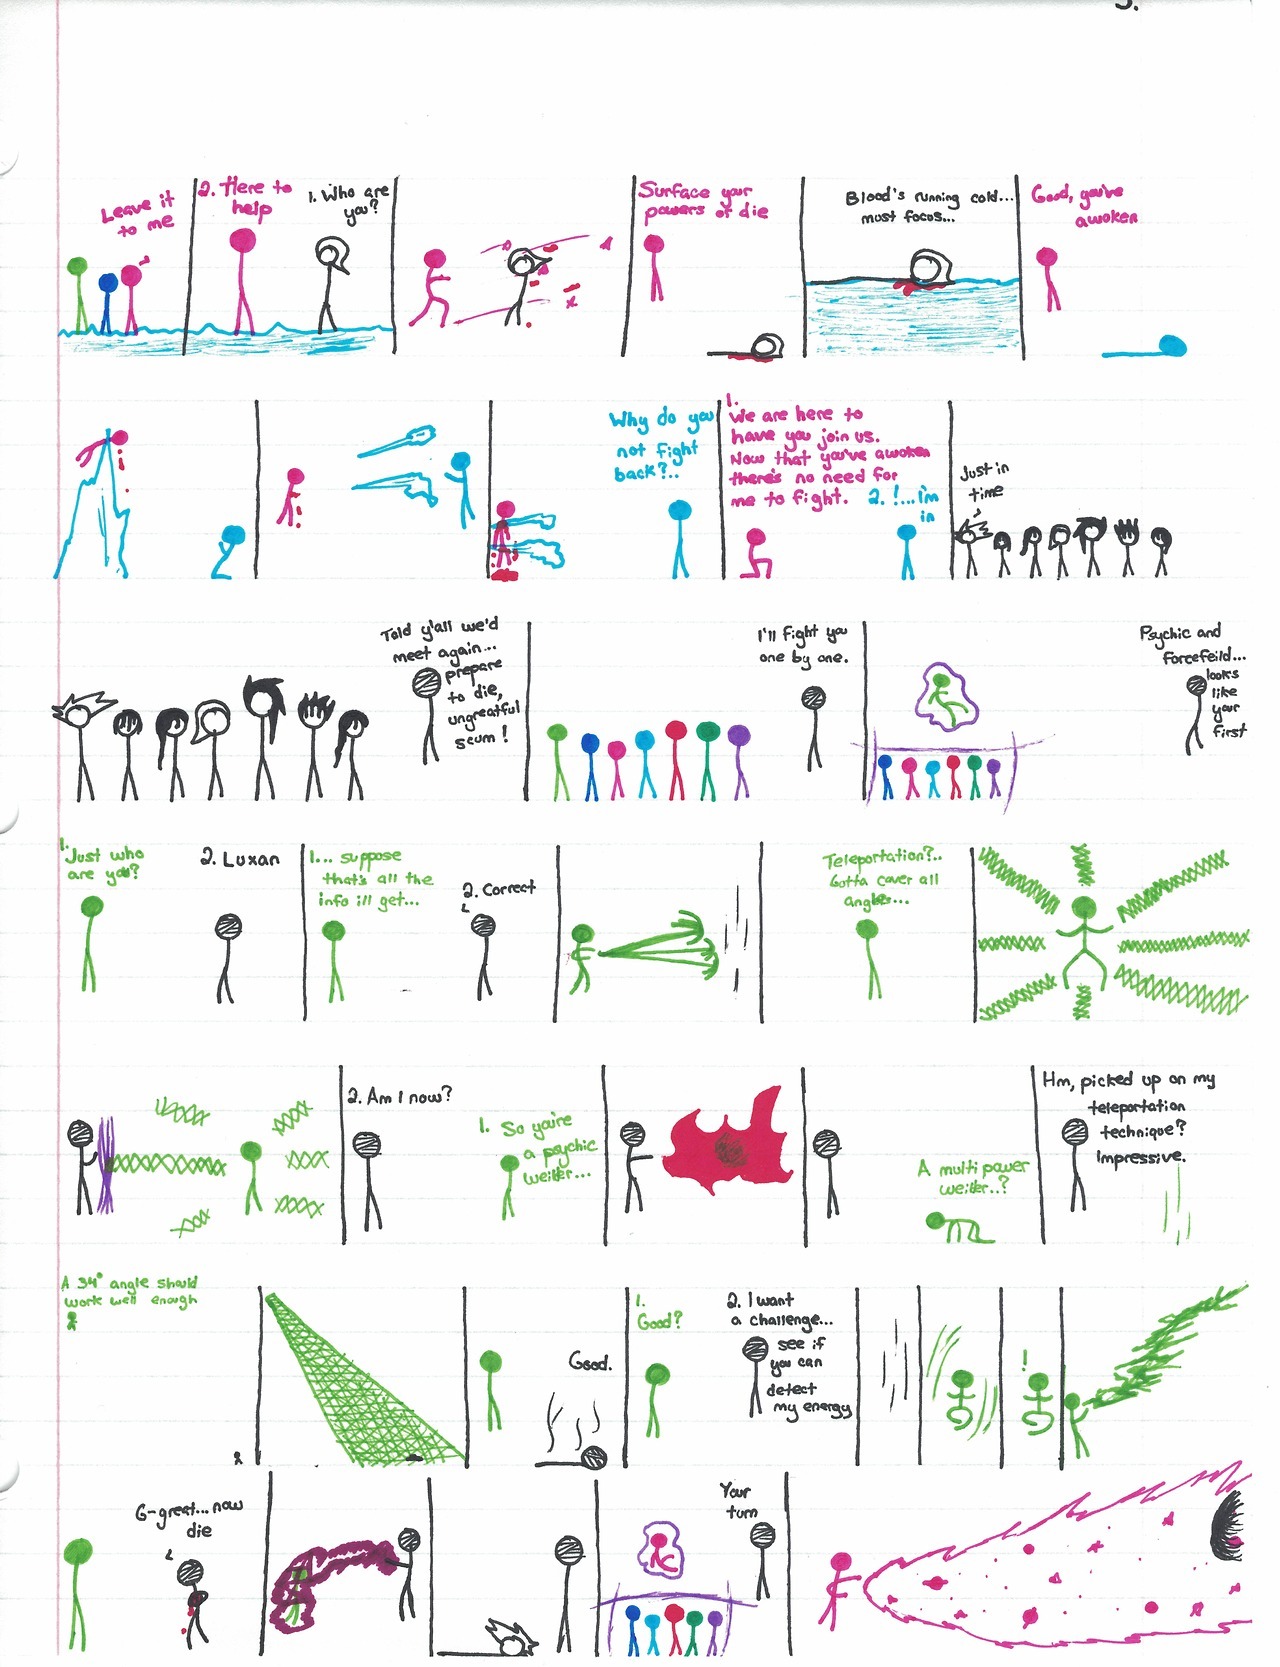 3.
Leave it
to me
2. Here to
help
1. Who are
you?
Surface your
powers or die
Blood's running cold...
must focus...
Good, you've
awoken
Why do you
not fight
back?...
1.
We are here to
have you join us.
Now that you've awoken
there's no need for
me to fight.
2. !...I'm
in
Just in
time
Told y'all we'd
meet again...
prepare
to die,
ungreatful
scum!
I'll fight you
one by one.
Psychic and
forcefeild...
looks
like
your
first
1.
Just who
are you?
2. Luxan
1... suppose
that's all the
info ill get...
2. Correct
Teleportation?..
Gotta cover all
angles...
2. Am I now?
1. So you're
a psychic
weilder...
A multi power
weilder..?
Hm, picked up on my
teleportation
technique?
Impressive.
A 34° angle should
work well enough
Good.
1.
Good?
2. I want
a challenge...
see if
you can
detect
my energy
!
G-great...now
die
Your
turn